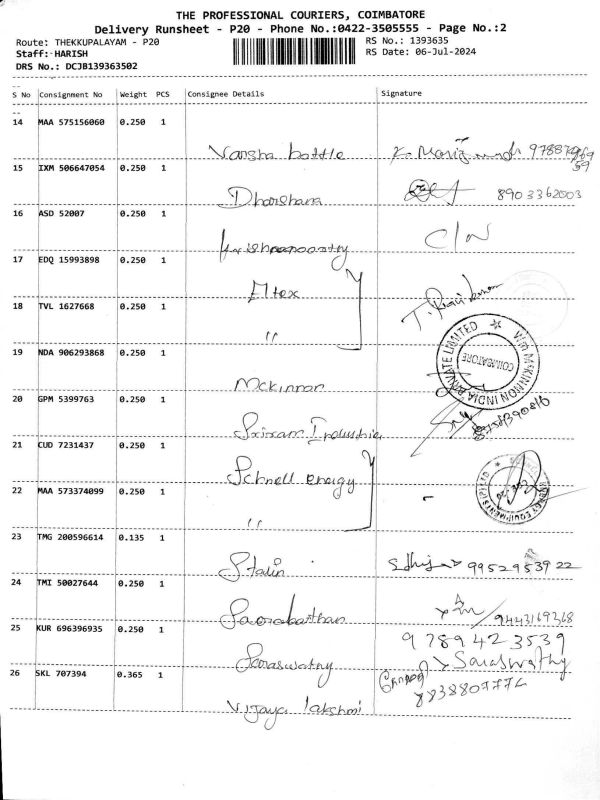 THE PROFESSIONAL COURIERS, COIMBATORE
Delivery Runsheet - P20 - Phone No.:0422-3505555 - Page No.:2
Route: THEKKUPALAYAM - P20
RS No.: 1393635
Staff: HARISH
RS Date: 06-Jul-2024
DRS No.: DCJB139363502
S No Consignment No Weight PCS Consignee Details Signature
14 MAA 575156060 0.250 1
Varsha bottle
15 IXM 506647054 0.250 1
Dharshana 8903362003
16 ASD 52007 0.250 1
Krishnamoorthy C/N
17 EDQ 15993898 0.250 1
Eltex
18 TVL 1627668 0.250 1
"
WM MCKINNON INDIA PRIVATE LIMITED
COIMBATORE
19 NDA 906293868 0.250 1
Mckinnon
20 GPM 5399763 0.250 1
Sriram Industries
21 CUD 7231437 0.250 1
Schnell energy
22 MAA 573374099 0.250 1
"
ENERGY EQUIPMENTS (P) LTD
23 TMG 200596614 0.135 1
Stalin 9952953922
24 TMI 50027644 0.250 1
9443169368
25 KUR 696396935 0.250 1
9789423539
Saraswathy Saraswathy
26 SKL 707394 0.365 1
Vijaya lakshmi